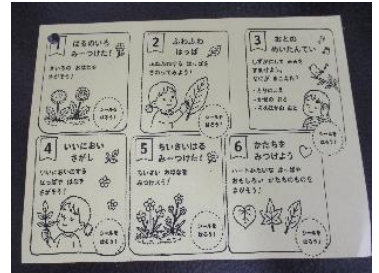 1
はるのいろ
みーつけた!
きいろの おはなを
さがそう!
シールを
はろう!
2
ふわふわ
はっぱ
ふわふわする はっぱを
さわってみよう!
シールを
はろう!
3
おとの
めいたんてい
しずかにして みみを
すまそう。
なにが きこえた?
・とりのこえ
・かぜの おと
・そのほかの おと
シールを
はろう!
4
いいにおい
さがし
いいにおいのする
はっぱや はなを
さがそう!
シールを
はろう!
5
ちいさいはる
みーつけた!
ちいさい おはなを
みつけよう!
シールを
はろう!
6
かたちを
みつけよう
ハートみたいな はっぱや
おもしろい かたちのものを
さがそう!
シールを
はろう!